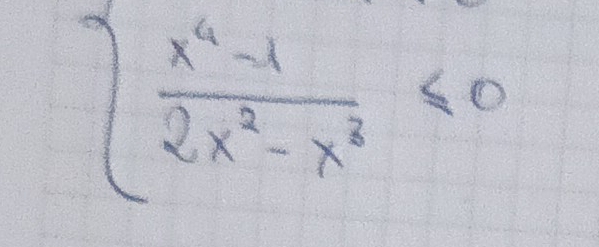 { (x⁴ - 1)/(2x² - x³) ≤ 0